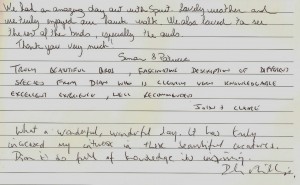 We had an amazing day out with great lovely weather and
we truly enjoyed our hawk walk. We also loved to see
the rest of the birds, especially the owls.
Thank you very much!
Simon &
TRULY BEAUTIFUL BIRDS, FASCINATING DESCRIPTION OF DIFFERENT
SPECIES FROM DIAN WHO IS CLEARLY VERY KNOWLEDGABLE
EXCELLENT EXPERIENCE, WELL RECOMMENDED
JOHN + CLAIRE
What a wonderful, wonderful day. It has truly
increased my interest in these beautiful creatures.
Dian is so full of knowledge its inspiring.